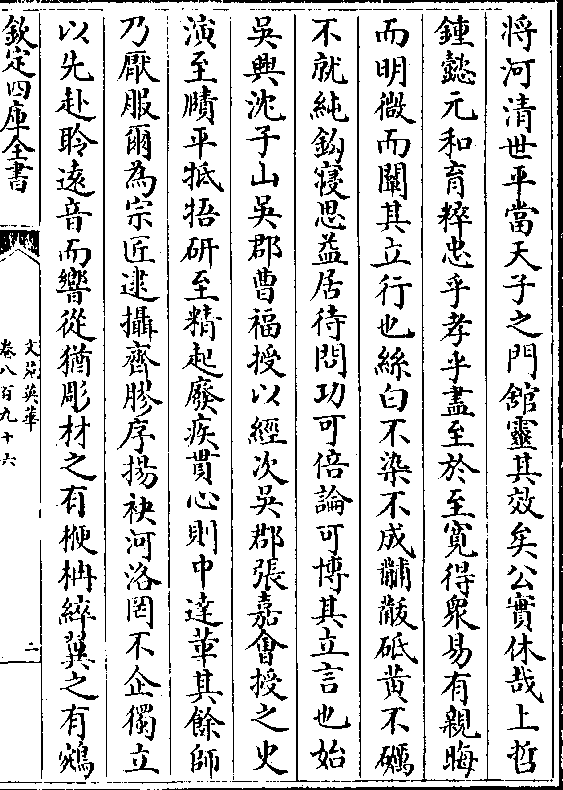 將河清世平當天子之門舘靈其效矣公實休哉上哲
鍾懿元和育粹忠乎孝乎盡至於至寛得衆易有親晦
而明微而闡其立行也絲白不染不成黼黻砥黄不礪
不就純鈎寝思益居待問功可倍論可博其立言也始
吳興沈子山吳郡曹福授以經次吳郡張嘉會授之史
演至賾平牴牾研至精起廢疾貫心則中達莘其餘師
乃厭服爾為宗匠逮攝齊膠序揚袂河洛罔不企獨立
以先赴聆遠音而響從猶彫材之有梗柟綷翼之有鵷
欽定四庫全書
文苑英華
卷八百九十六
二